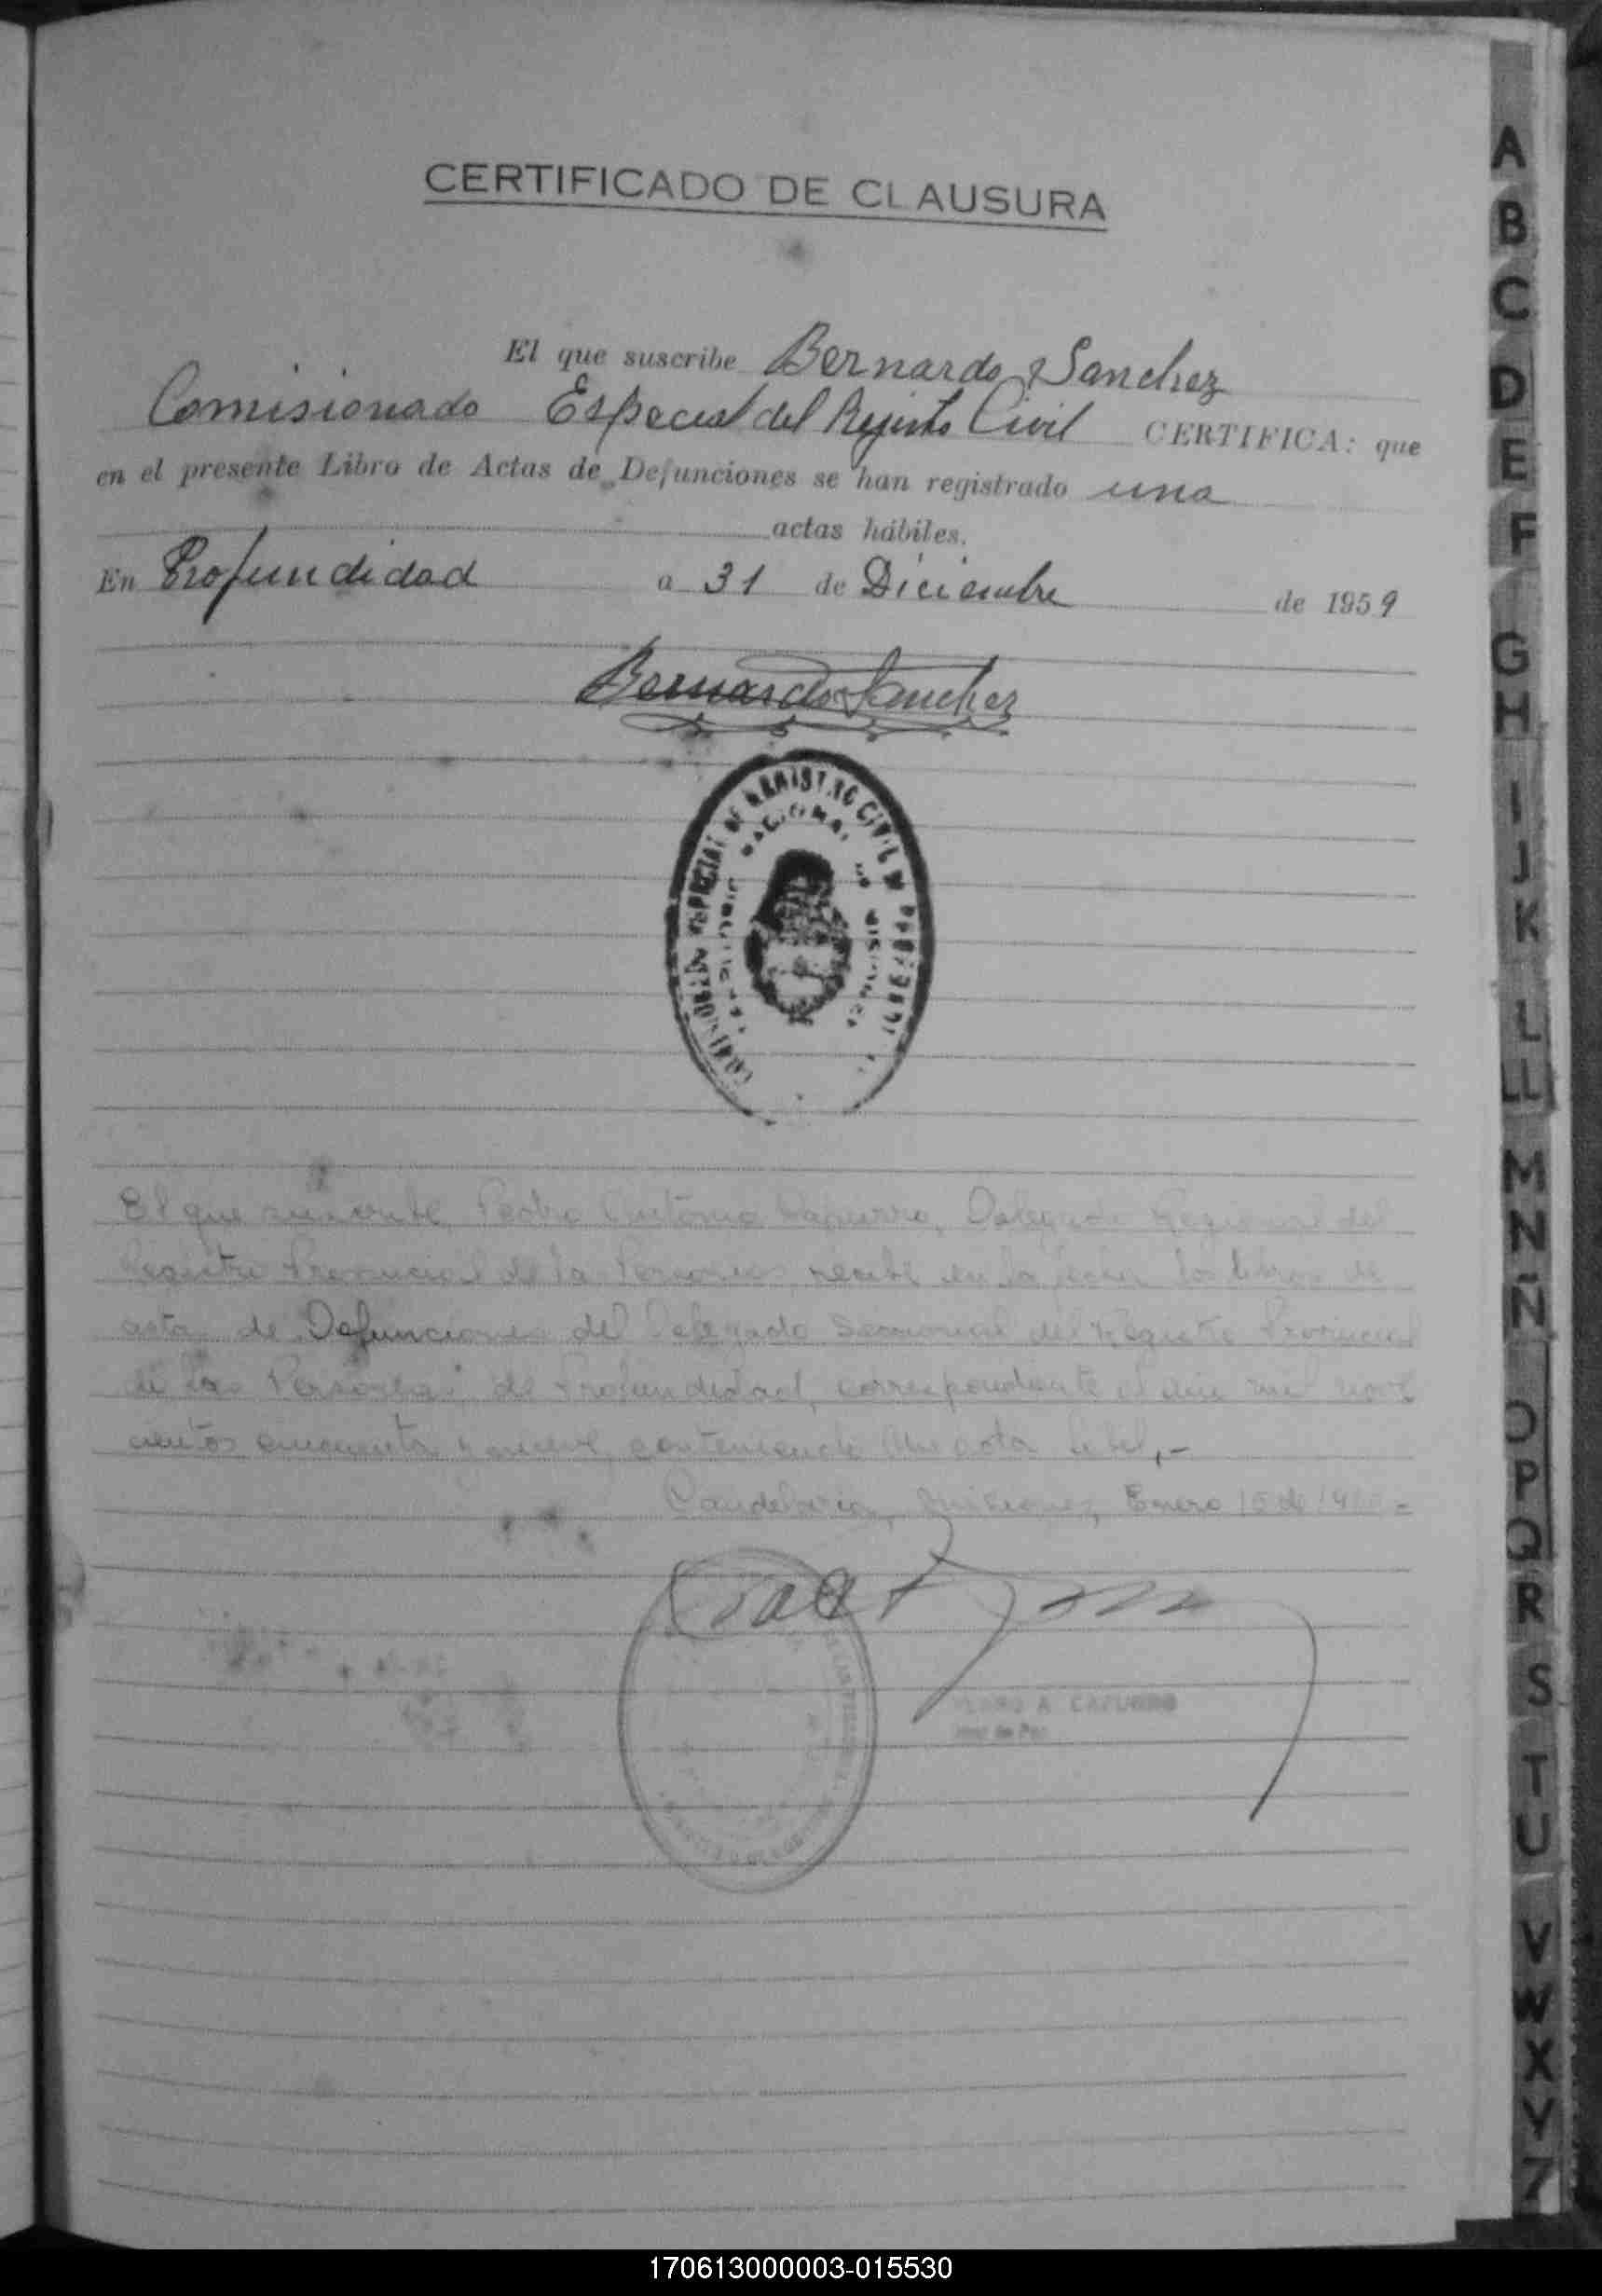 CERTIFICADO DE CLAUSURA
El que suscribe Bernardo Sanchez
Comisionado Especial del Registro Civil CERTIFICA: que
en el presente Libro de Actas de Defunciones se han registrado una
actas hábiles.
En Profundidad a 31 de Diciembre de 1959
Bernardo Sanchez
REGISTRO CIVIL
El que suscribe, Pedro Antonio Capurro, Delegado Regional del
Registro Provincial de la Personas, recibe en la fecha los libros de
acta de Defunciones del Delegado Seccional del Registro Provincial
de las Personas de Profundidad, correspondiente al año mil nove
cientos cincuenta y nueve, conteniendo Una acta
Candelaria, Misiones, Enero 15 de
PEDRO A CAPURRO
Juez de Paz
A
B
C
D
E
F
G
H
I
J
K
L
LL
M
N
Ñ
O
P
Q
R
S
T
U
V
W
X
Y
Z
170613000003-015530